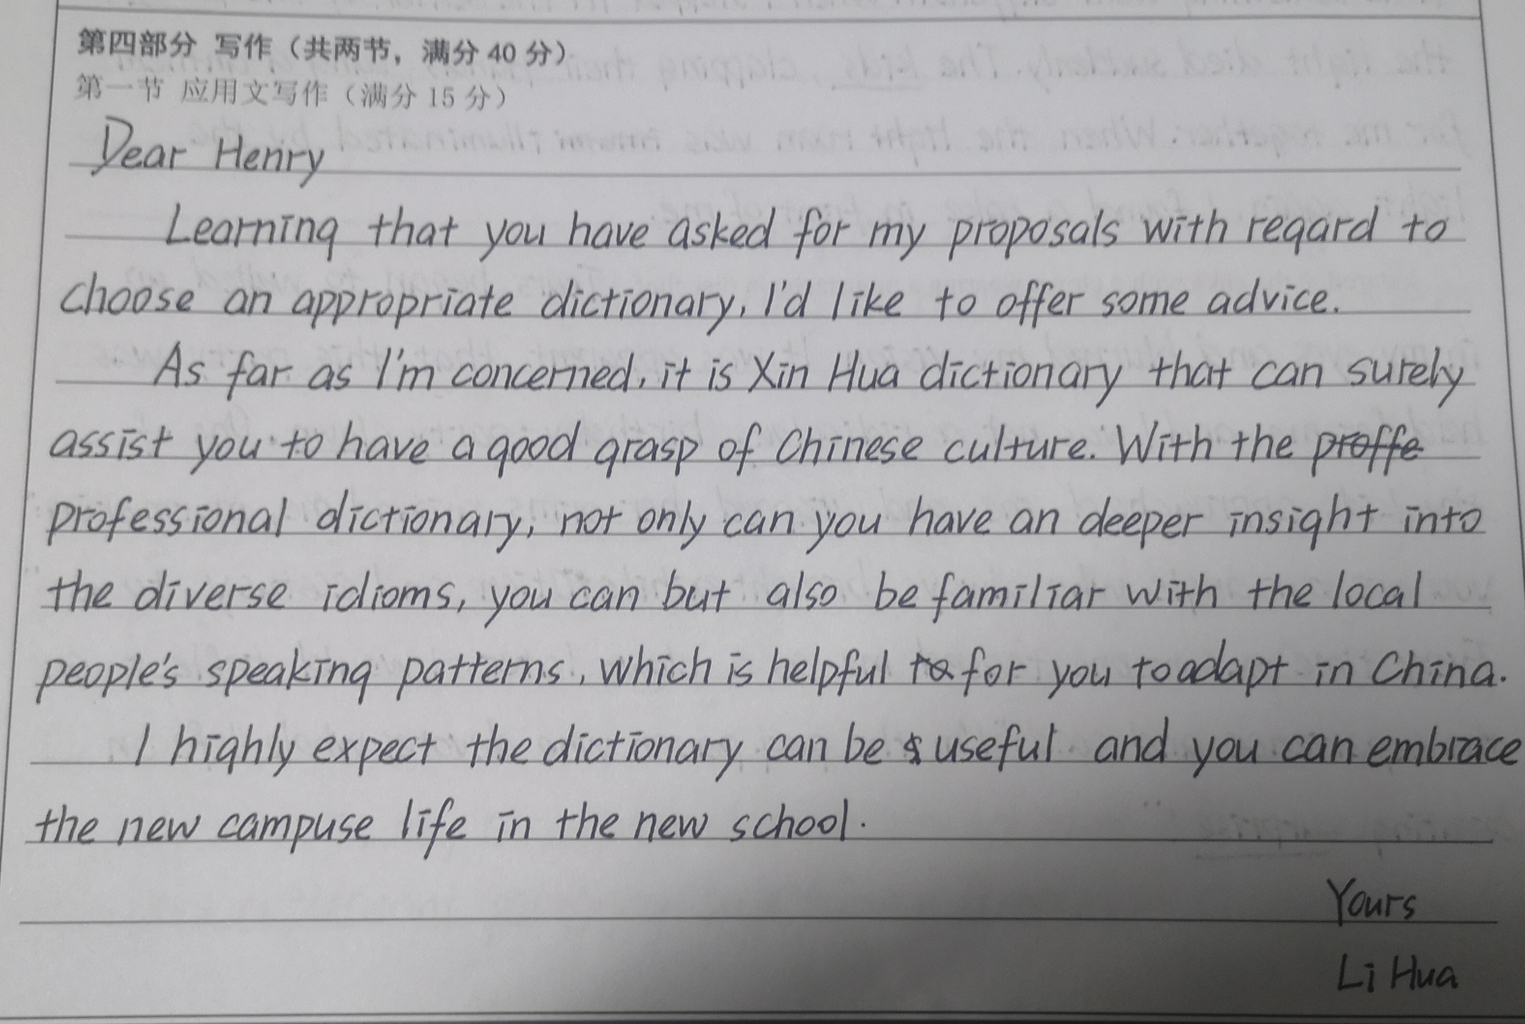 第四部分 写作（共两节，满分 40 分）
第一节 应用文写作（满分 15 分）
Dear Henry
Learning that you have asked for my proposals with regard to
choose an appropriate dictionary, I'd like to offer some advice.
As far as I'm concerned, it is Xin Hua dictionary that can surely
assist you to have a good grasp of Chinese culture. With the proffe
professional dictionary, not only can you have an deeper insight into
the diverse idioms, you can but also be familiar with the local
people's speaking patterns, which is helpful to for you to adapt in China.
I highly expect the dictionary can be useful and you can embrace
the new campuse life in the new school.
Yours
Li Hua